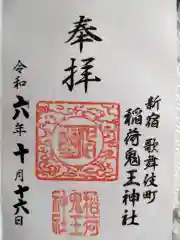 奉拝
新宿 歌舞伎町
稲荷鬼王神社
令和六年十月十六日
稲荷
鬼王
神社